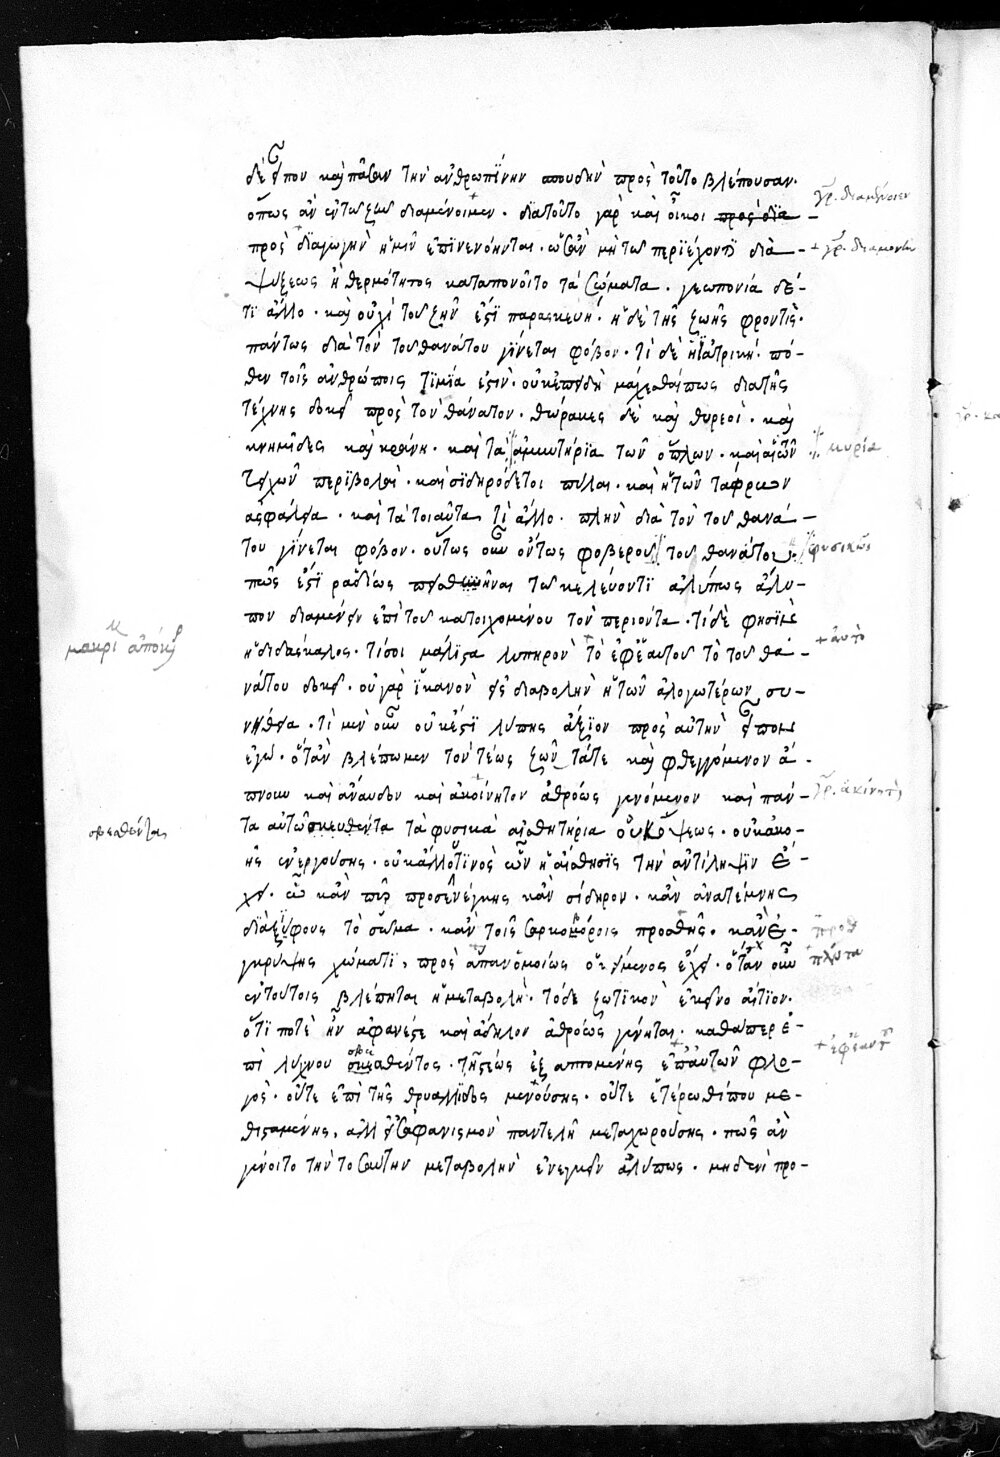 δὲ εἴπου καὶ πᾶσαν τὴν ἀνθρωπίνην σπουδὴν πρὸς τοῦτο βλέπουσαν·
ὅπως ἂν ἐν τῷ ζῆν διαμένοιμεν · διατοῦτο γὰρ καὶ οἶκοι προς δια –
γρ. διαμένοιεν
πρὸς διαγωγὴν ἡμῖν ἐπινενόηνται · ὡς ἂν μὴ τῶ περιέχοντι διὰ –
+ γρ. διαμονὴν
ψύξεως ἢ θερμότητος καταπονοῖτο τὰ σώματα · γεωπονία δέ –
τί ἄλλο · καὶ οὐχὶ τοῦ ζῆν ἐστὶ παρασκευή · ἡ δὲ τῆς ζωῆς φροντὶς·
πάντως διὰ τὸν τοῦ θανάτου γίνεται φόβον · τί δὲ ἡ ἰατρικὴ · πό –
θεν τοῖς ἀνθρώποις τιμία ἐστὶν · οὐκ ἐπειδὴ μάχεσθαί πως διὰ τῆς
τέχνης δοκεῖ πρὸς τὸν θάνατον · θώρακες δὲ καὶ θυρεοὶ · καὶ
κνημῖδες καὶ κράνη · καὶ τὰ ἀμυντήρια τῶν ὅπλων · καὶ αἱ τῶν
κυρία
τειχῶν περιβολαὶ · καὶ σιδηρόδετοι πύλαι · καὶ ἡ τῶν τάφρων
ἀσφάλεια · καὶ τὰ τοιαῦτα τί ἄλλο · πλὴν διὰ τὸν τοῦ θανά –
του γίνεται φόβον · οὕτως οὖν ὄντως φοβεροῦ τοῦ θανάτου ·
φυσικῶς
πῶς ἐστὶ ῥαδίως πεισθῆναι τῶ κελεύοντι ἀλύπως ἄλυ –
πον διαμένειν ἐπὶ τοῦ κατοιχομένου τὸν περιόντα · τί δὲ φησὶν
ἡ διδάσκαλος · τί σοι μάλιστα λυπηρὸν τὸ ἐφ' ἑαυτοῦ τὸ τοῦ θα –
+ αὐτὸ
νάτου δοκεῖ · οὐ γὰρ ἱκανὸν εἰς διαβολὴν ἡ τῶν ἀλογωτέρων συ –
νήθεια · τί μὲν οὖν οὐκ ἔστι λύπης ἄξιον πρὸς αὐτὴν εἶπον
ἐγώ · ὅταν βλέπωμεν τὸν τέως ζῶντά τε καὶ φθεγγόμενον ἄ –
πνουν καὶ ἄναυδον καὶ ἀκοίνητον ἀθρόως γενόμενον καὶ πάν –
γρ. ἀκίνητον
τα αὐτῶ σκευθέντα τὰ φυσικὰ αἰσθητήρια οὐκ ὄψεως · οὐκ ἀκο –
σβεσθέντα
ῆς ἐνεργούσης · οὐκ ἄλλό τινος ὧν ἡ αἴσθησις τὴν ἀντίληψιν ἔ –
χει · ὧ κἂν πῦρ προσενέγκης κἂν σίδηρον · κἂν ἀνατέμνης
διὰ ξίφους τὸ σῶμα · κἂν τοῖς σαρκοβόροις προσθῆς · κἂν ἐ –
προθ
γκρύψης χώματι · πρὸς ἅπαν ὁμοίως ὁ κείμενος ἔχει · ὅταν οὖν
πάντα
ἐν τούτοις βλέπηται ἡ μεταβολὴ · τὸ δὲ ζωτικὸν ἐκεῖνο αἴτιον·
ὅτί ποτὲ ἦν ἀφανές τε καὶ ἄδηλον ἀθρόως γένηται · καθάπερ ἐ –
πὶ λύχνου σβεσθέντος · τῆς τέως ἐξαπτομένης ἐπ' αὐτῶν φλο –
+ ἐφ' ἑαυτ
γὸς · οὔτε ἐπὶ τῆς θρυαλλίδος μενούσης · οὔτε ἑτέρωθί που με –
θισταμένης, ἀλλ' εἰς ἀφανισμὸν παντελῆ μεταχωρούσης · πῶς ἂν
γένοιτο τὴν τοσαύτην μεταβολὴν ἐνεγκεῖν ἀλύπως · μηδενὶ προ –